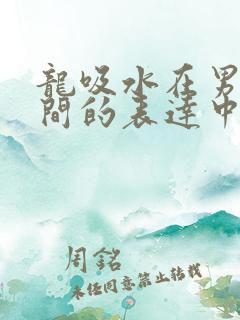 龍吸水在男
間的表達中
周銘
未任同意禁止轉載